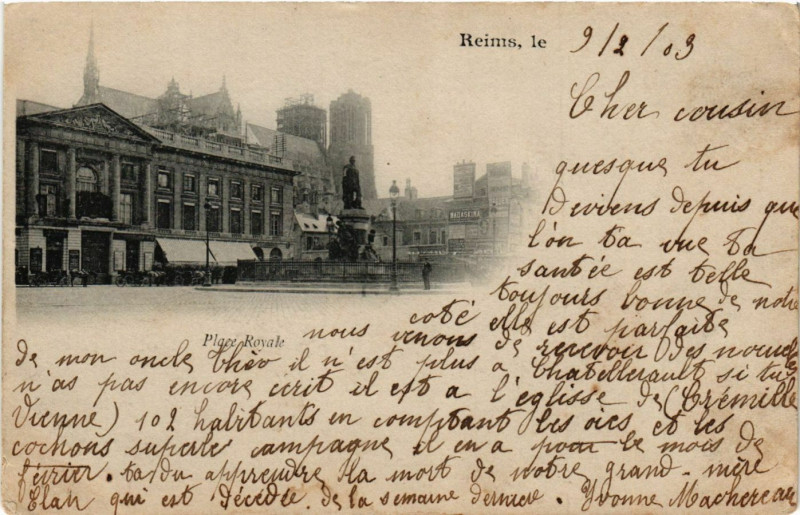 Reims, le 9/2/03
Cher cousin
quesque tu
deviens depuis que
l'on ta vue ta
santée est telle
toujours bonne de notre
coté elle est parfaite
Place Royale
nous venons de recevoir des nouvelles
de mon oncle théo il n'est plus a Chatellerault si tu
n'as pas encore écrit il est a l'eglisse de (Crémille
Vienne) 102 habitants en comptant les oies et les
cochons superbe campagne il en a pour le mois de
février. ta du apprendre la mort de notre grand-mère
Elah qui est décédée de la semaine dernière. Yvonne Machereau